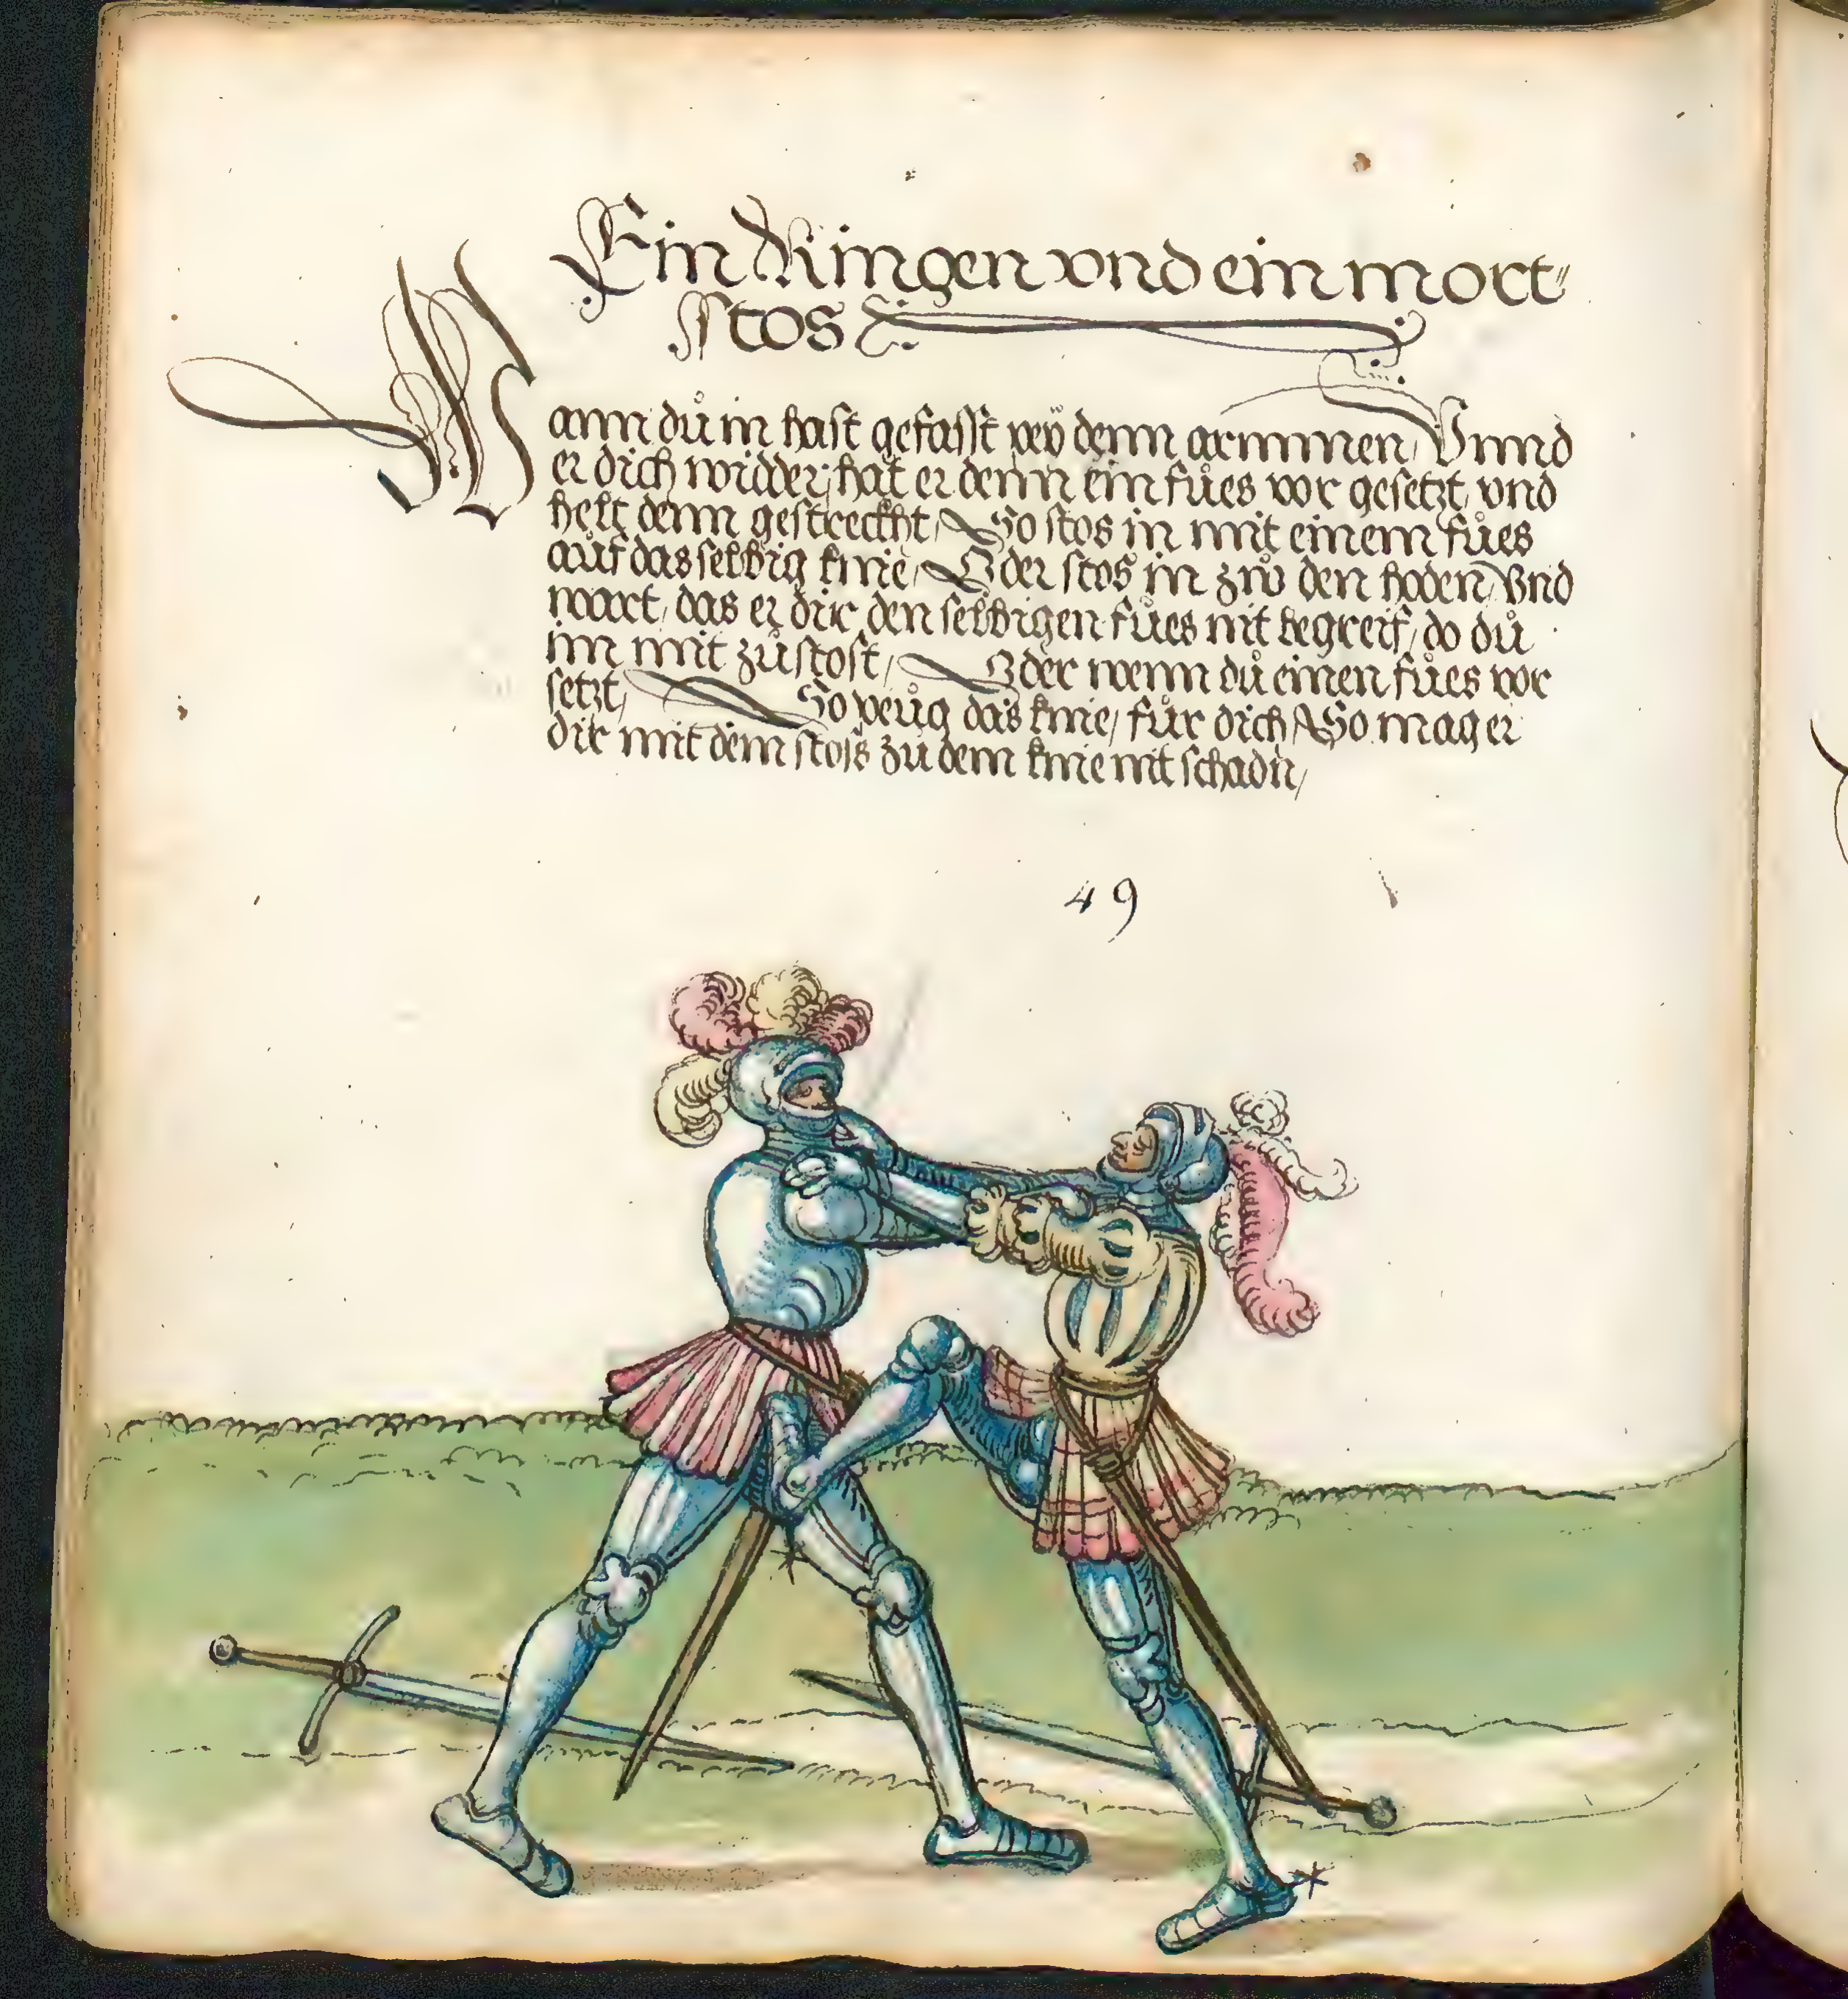 Ein Ringen vnd ein mort⸗
stos ꝛc.
Wann dů in hast gefasst pey denn armmen, Vnnd
er dich widder, hat er denn ein fůes vor gesetzt, vnd
helt denn gestreckht, So stos in mit einem fůes
aůf das selbig knie, Oder stos in zw den hoden, Vnd
wart, das er dir den selbigen fůes nit begreif, do dů
im mit zůstost, Oder wenn dů einen fůes vor
setzt, So peůg das knie, fůr dich, So mag er
dir mit dem stoss zů dem knie nit schadn,
49